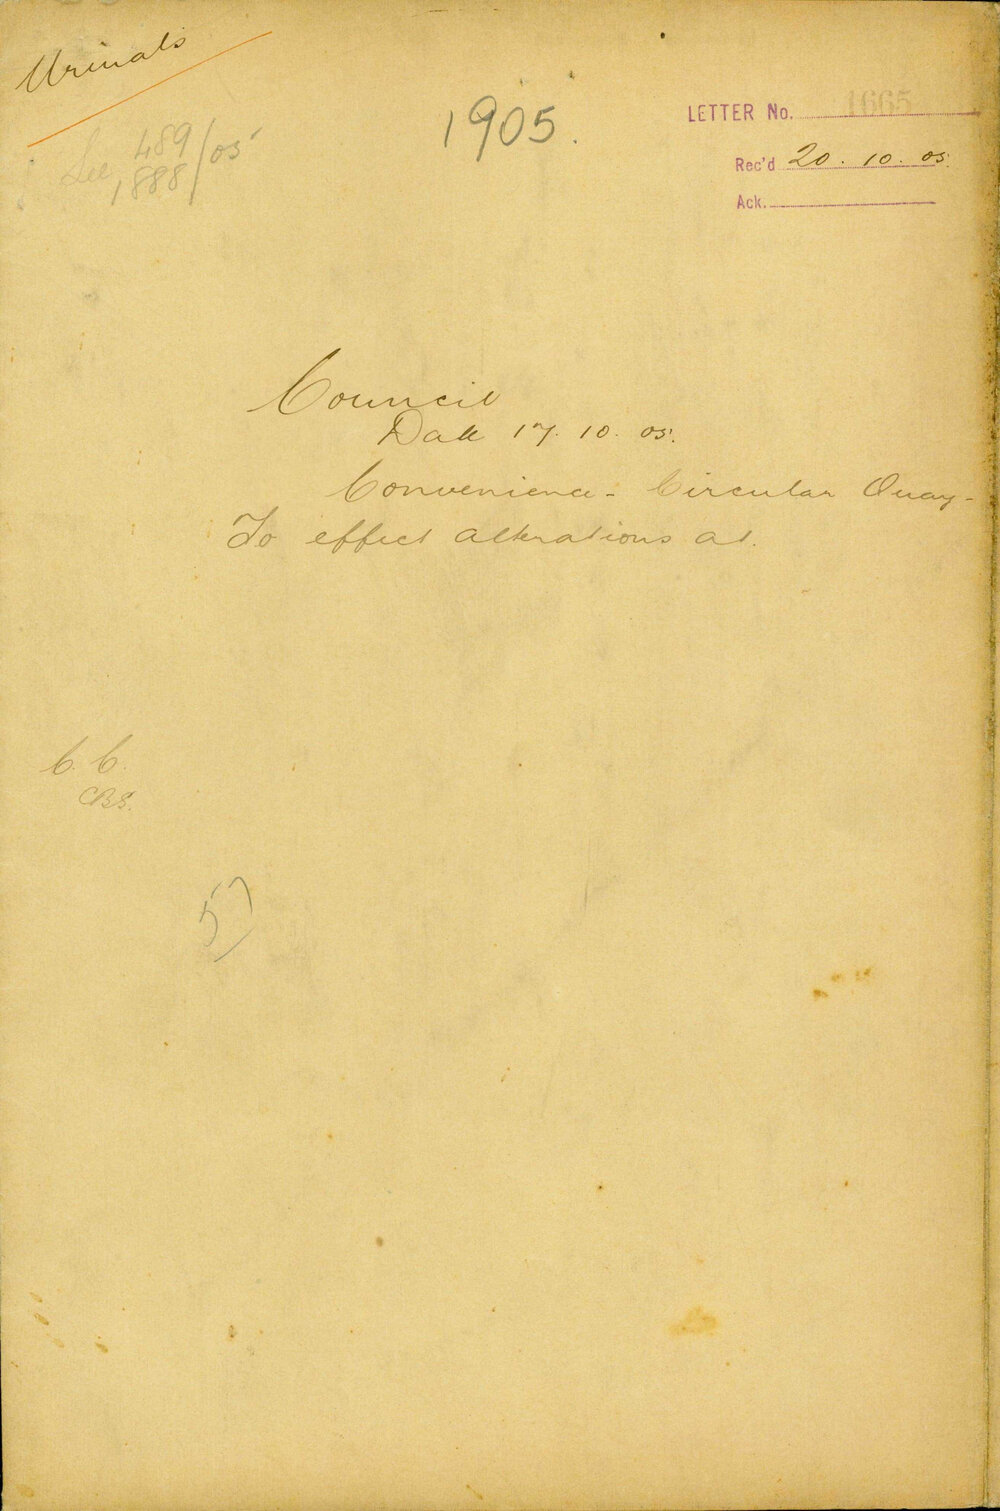 Urinals
See 489/05
1888
1905.
LETTER No. 1665
Rec'd 20. 10. 05.
Ack.
Council
Date 17. 10. 05.
Convenience - Circular Quay -
To effect alterations at.
C. C.
CBS.
57